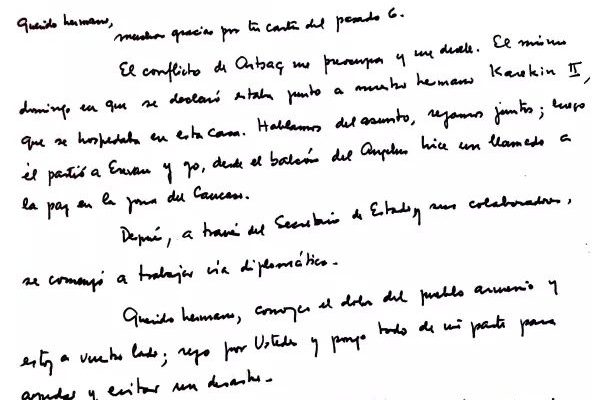 Querido hermano,
muchas gracias por tu carta del pasado 6.
El conflicto de Artsaq me preocupa y me duele. El mismo
domingo en que se declaró estaba junto a nuestro hermano Karekin II,
que se hospedaba en esta casa. Hablamos del asunto, rezamos juntos; luego
él partió a Erevan y yo, desde el balcón del Angelus hice un llamado a
la paz en la zona del Caucaso.
Después, a través del Secretario de Estado y sus colaboradores,
se comenzó a trabajar vía diplomática.
Querido hermano, conozco el dolor del pueblo armenio y
estoy a vuestro lado; rezo por Ustedes y pongo todo de mi parte para
ayudar y evitar un desastre.